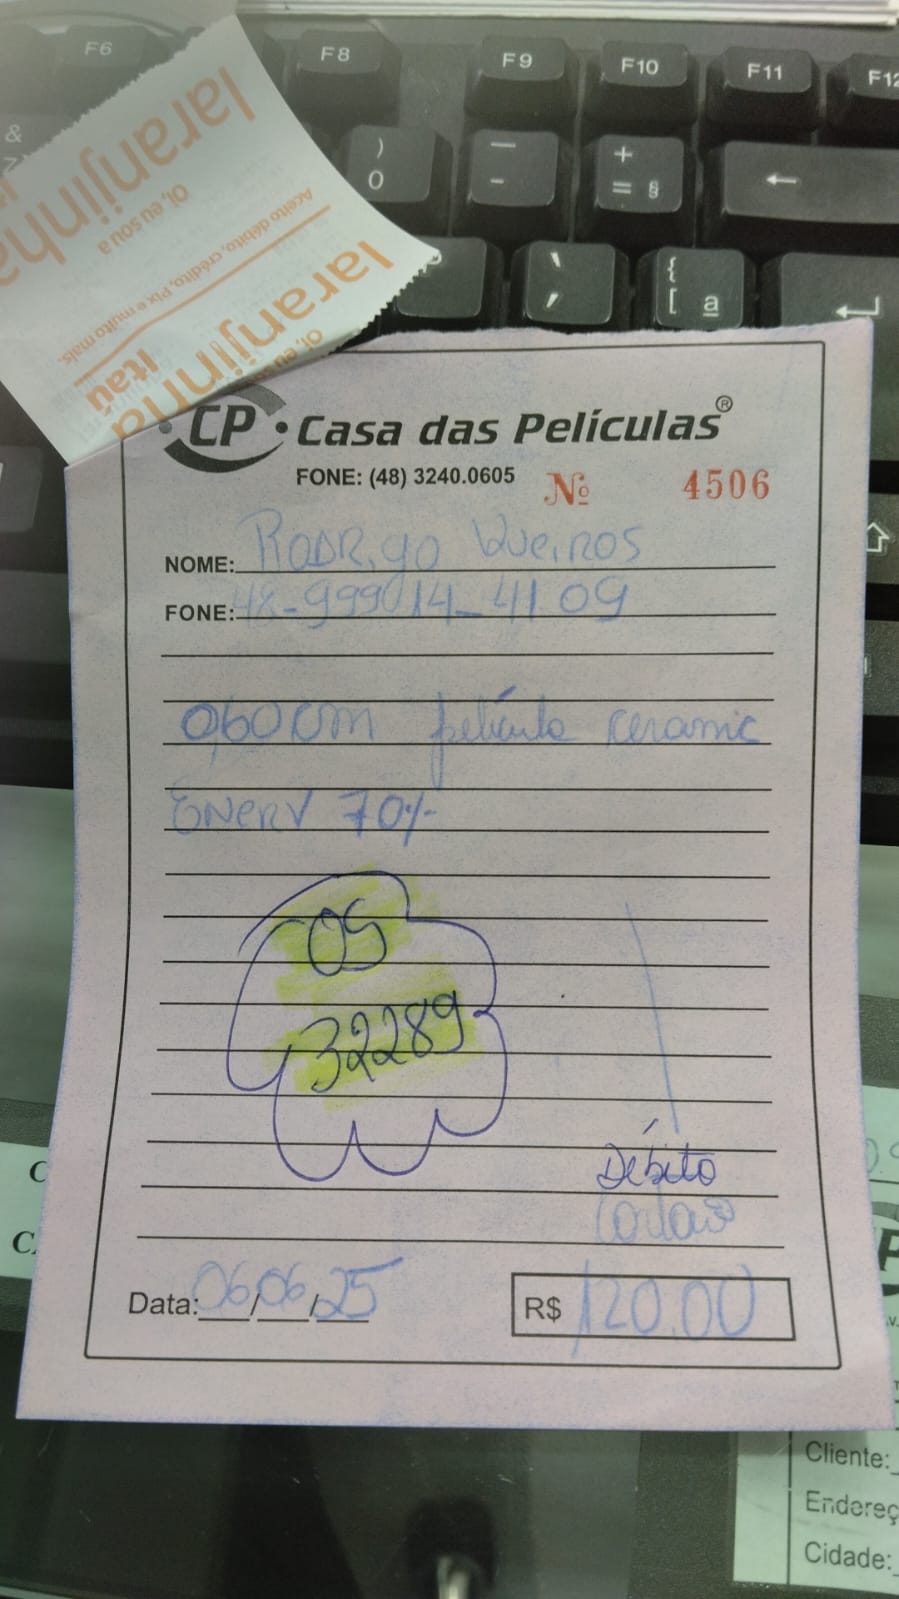 F6
F8
F9
F10
F11
F12
&
7
)
0
—
-
+
= §
←
P
`
´
{
[ ª
laranjinha
Oi, eu sou a
Aceito débito, crédito, Pix e muito mais.
laranjinha
Itaú
CP Casa das Películas®
FONE: (48) 3240.0605 Nº 4506
NOME: Rodrigo Queiros
FONE: 48-999014-4109
0,60 cm película ceramic
ENERV 70%
OS
32289
Débito
Cartão
Data: 06/06/25 R$ 120,00
Cliente:
Endereç
Cidade: